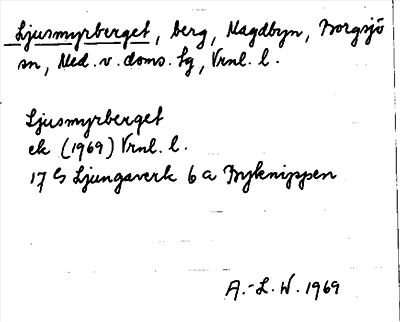 Ljusmyrberget, berg, Magdbyn, Borgsjö
sn, Med. v. doms. tg, Vrnl. l.
Ljusmyrberget
ek (1969) Vrnl. l.
17 G Ljungaverk 6 a Bryknippen
A.-L. W. 1969